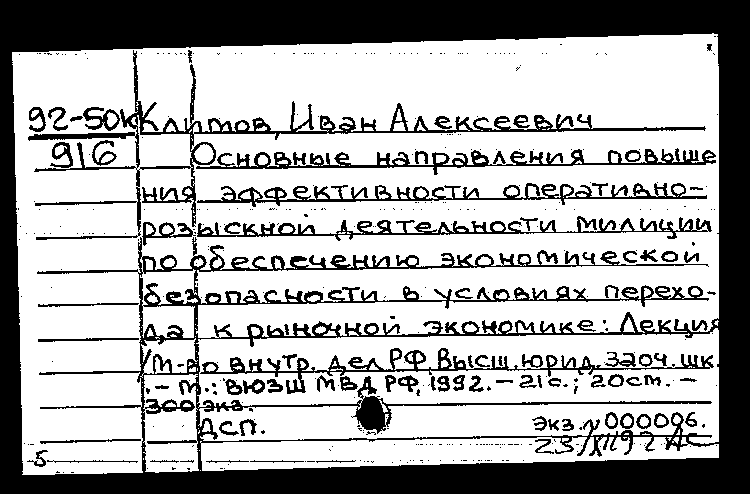 92-50к Климов, Иван Алексеевич
916 Основные направления повыше
ния эффективности оперативно-
розыскной деятельности милиции
по обеспечению экономической
безопасности в условиях перехо-
да к рыночной экономике: Лекция
/М-во внутр. дел РФ, Высш. юрид. заоч. шк.
. – М.: ВЮЗШ МВД РФ, 1992. – 21 с.; 20 см. –
300 экз.
ДСП. Экз. № 000006.
23/XII 92 АС
5